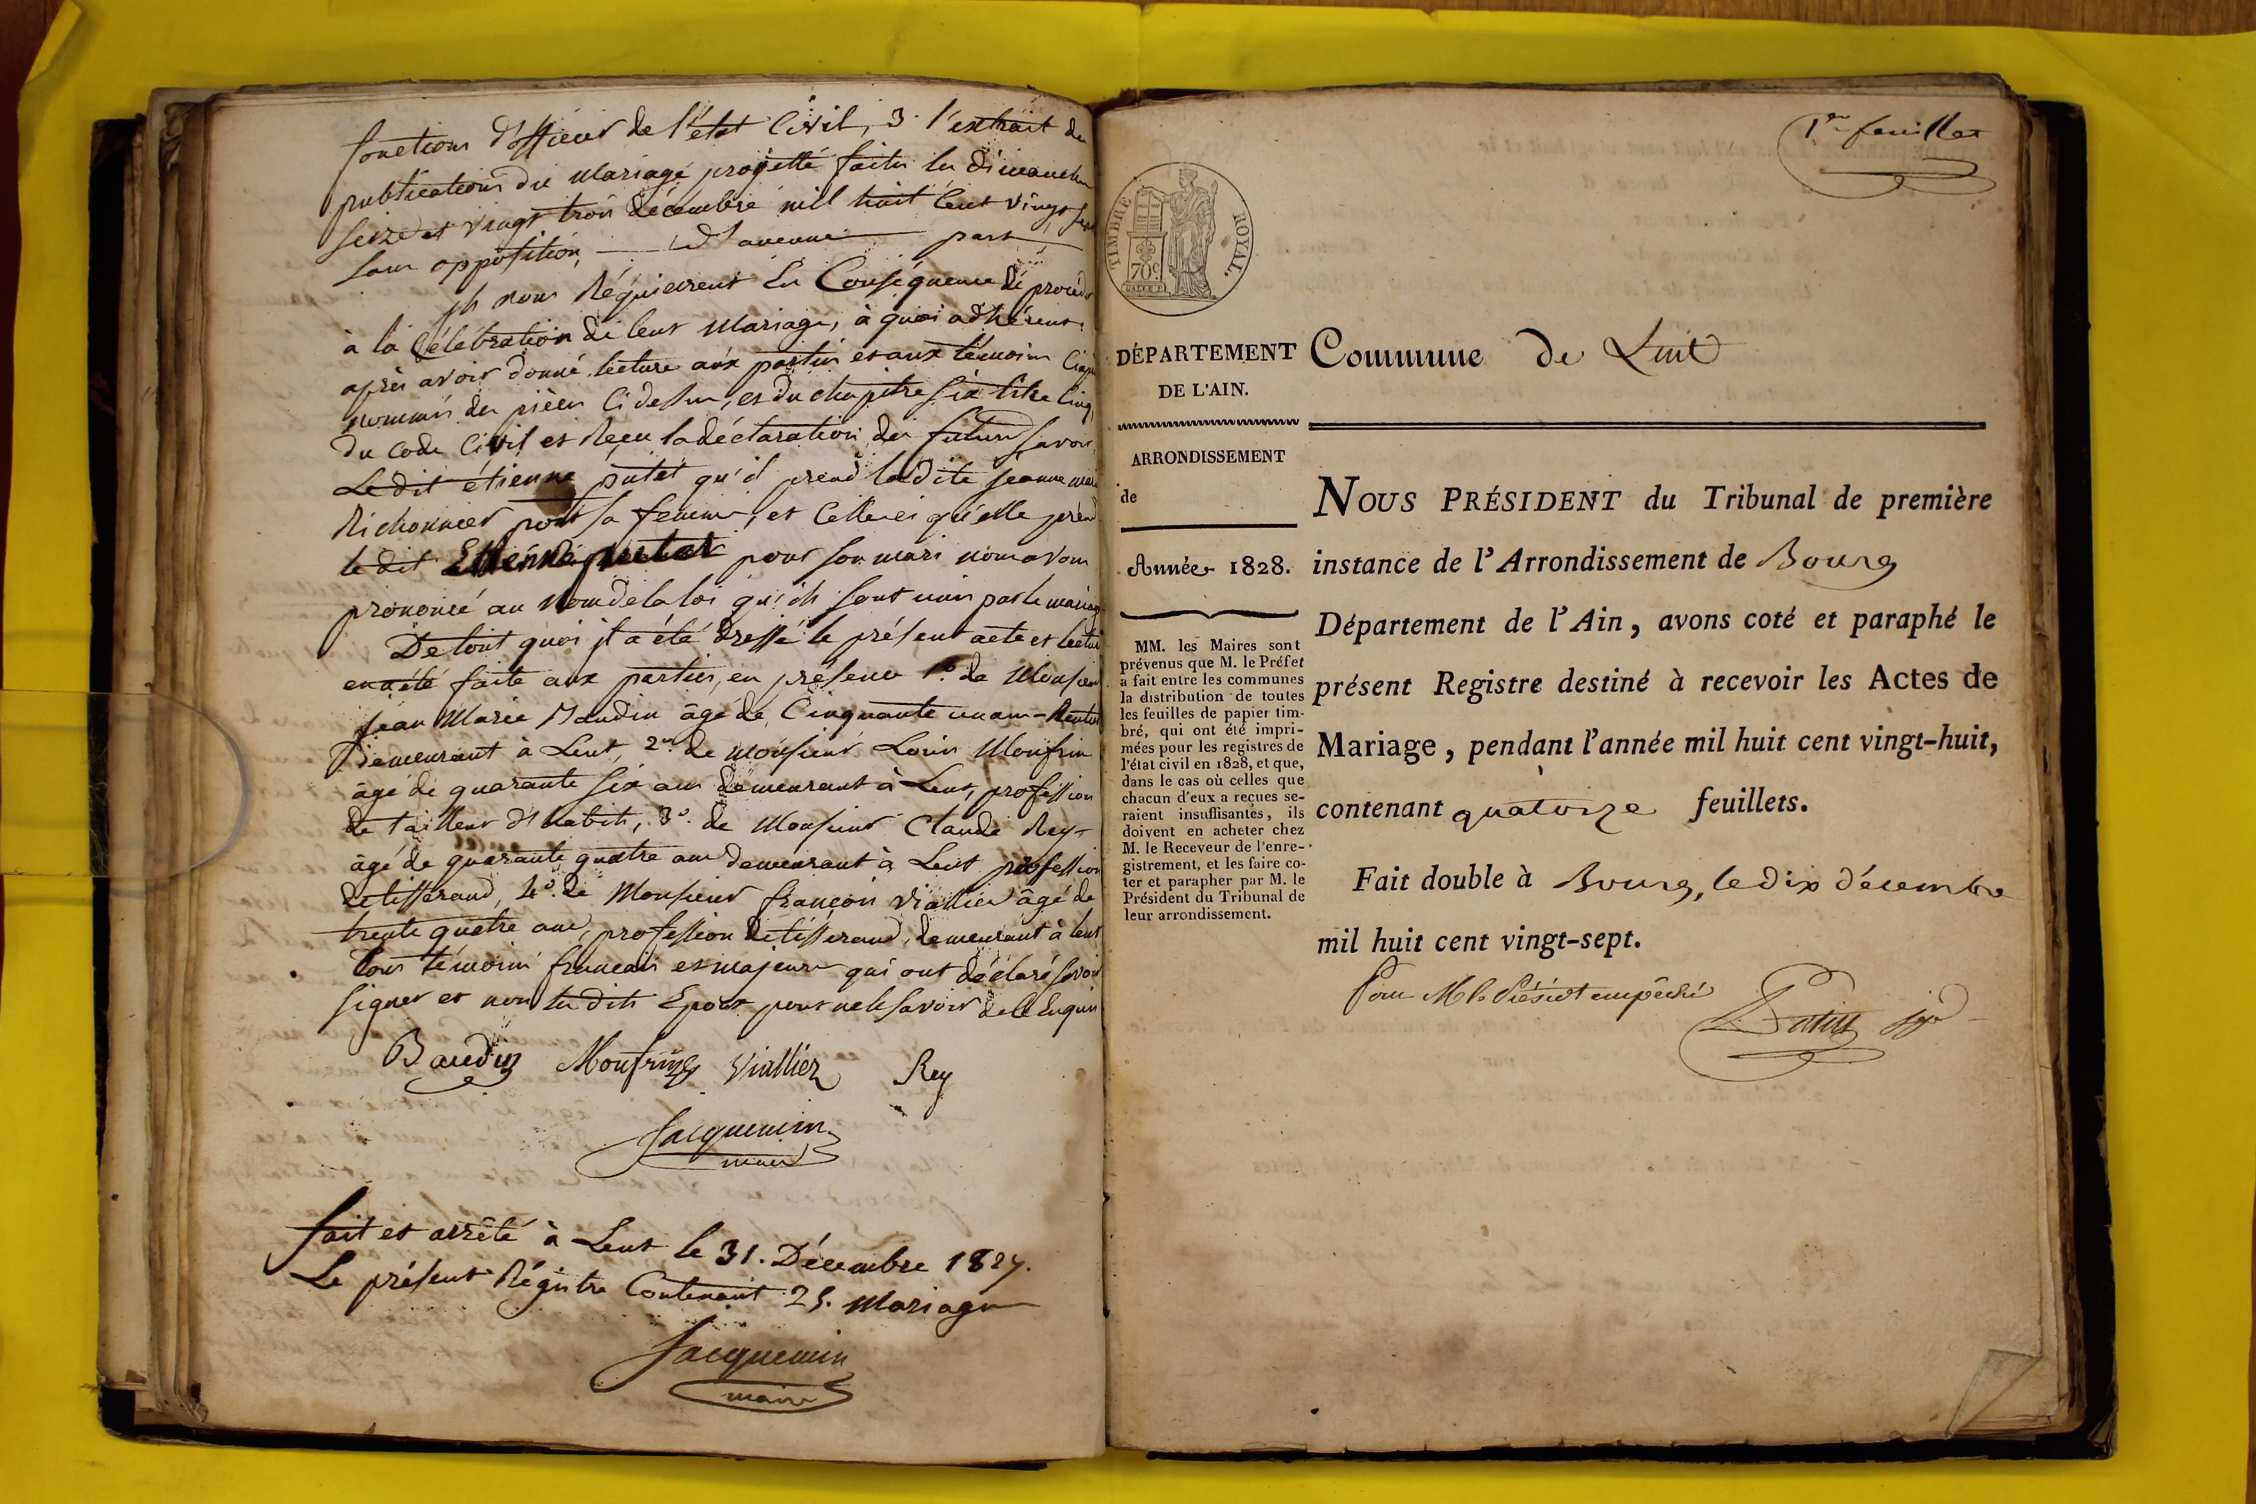 fonctions d'officier de l'état Civil, 3.° l'extrait des
publications du mariage projetté faites les dimanches
seize et vingt trois décembre mill huit cent vingt sept
sans opposition, d'aucune part
ils nous Réquierent En Conséquence de procéder
à la Célébration de leur Mariage, à quoi adhérent
après avoir donné lecture aux parties et aux témoins Ciaprès
nommés des pièces Cidessus, et du chapitre six titre Cinq
du Code Civil et Reçu la déclaration des futurs savoir
Le dit étienne putet qu'il prend ladite jeanne marie
Richonnier pour sa femme, et Celleci qu'elle prend
le dit Etienne putet pour son mari nous avons
prononcé au nom de la loi qu'ils sont unis par le mariage
De tout quoi il a été dressé le présent acte et lecture
en a été faite aux parties, en présence 1.° de Monsieur
jean Marie Baudin âgé de Cinquante un ans - Rentier
demeurant à Lent, 2.° de monsieur Louis Monfrin
âgé de quarante six ans demeurant à Lent, profession
de tailleur d'habits, 3.° de Monsieur Claude Rey
âgé de quarante quatre ans demeurant à Lent profession
de tisserand, 4.° de Monsieur françois viallier âgé de
trente quatre ans, profession de tisserand, demeurant à Lent
tous témoins français et majeurs qui ont déclaré savoir
signer et non les dits Epoux pour ne le savoir de ce Enquis
Baudin Monfrin Viallier Rey
Jacquemin
maire
fait et arrêté à Lent le 31. Décembre 1827.
Le présent Régistre Contenant 25. Mariages
Jacquemin
maire
1er feuillet
TIMBRE ROYAL.
70c
DÉPARTEMENT
DE L'AIN.
Commune de Lent
ARRONDISSEMENT
de
Année 1828.
MM. les Maires sont
prévenus que M. le Préfet
a fait entre les communes
la distribution de toutes
les feuilles de papier tim-
bré, qui ont été impri-
mées pour les registres de
l'état civil en 1828, et que,
dans le cas où celles que
chacun d'eux a reçues se-
raient insuffisantes, ils
doivent en acheter chez
M. le Receveur de l'enre-
gistrement, et les faire co-
ter et parapher par M. le
Président du Tribunal de
leur arrondissement.
NOUS PRÉSIDENT du Tribunal de première
instance de l'Arrondissement de Bourg
Département de l'Ain, avons coté et paraphé le
présent Registre destiné à recevoir les Actes de
Mariage, pendant l'année mil huit cent vingt-huit,
contenant quatorze feuillets.
Fait double à Bourg, le dix décembre
mil huit cent vingt-sept.
Pour M. le Président empêché